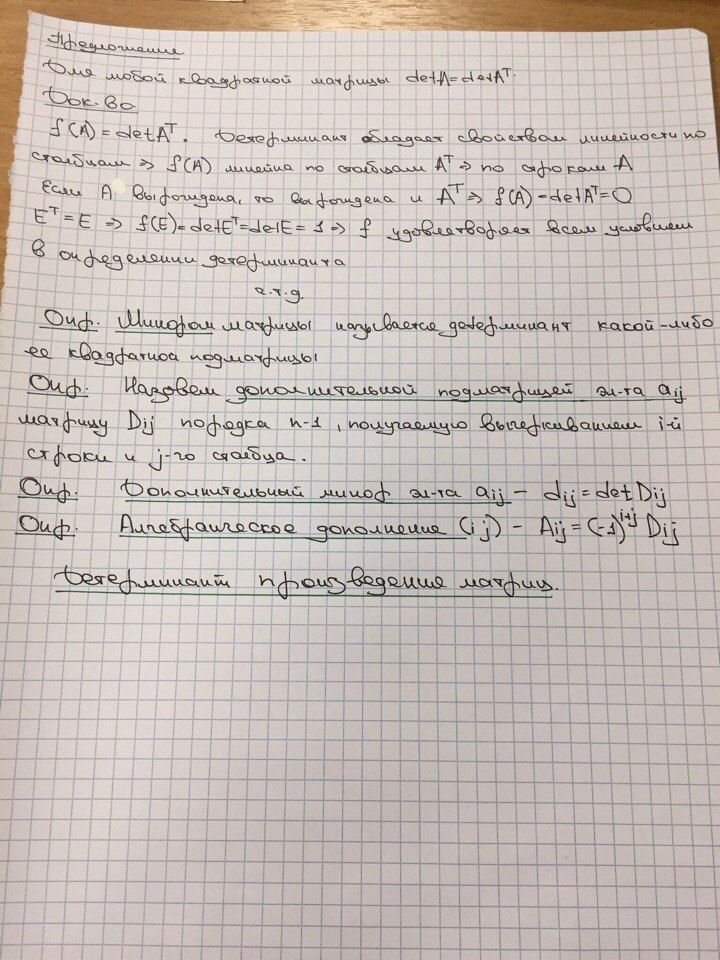 Предложение
Для любой квадратной матрицы detA = detAᵀ.
Док-во.
f(A) = detAᵀ. Детерминант обладает свойством линейности по
столбцам ⇒ f(A) линейна по столбцам Aᵀ ⇒ по строкам A
Если A вырождена, то вырождена и Aᵀ ⇒ f(A) = detAᵀ = 0
Eᵀ = E ⇒ f(E) = detEᵀ = detE = 1 ⇒ f удовлетворяет всем условиям
в определении детерминанта
ч.т.д.
Опр. Минором матрицы называется детерминант какой-либо
ее квадратной подматрицы
Опр. Назовем дополнительной подматрицей эл-та aij
матрицу Dij порядка n-1, получаемую вычеркиванием i-й
строки и j-го столбца.
Опр. Дополнительный минор эл-та aij – dij = det Dij
Опр. Алгебраическое дополнение (ij) – Aij = (-1)ⁱ⁺ʲ Dij
Детерминант произведение матриц.